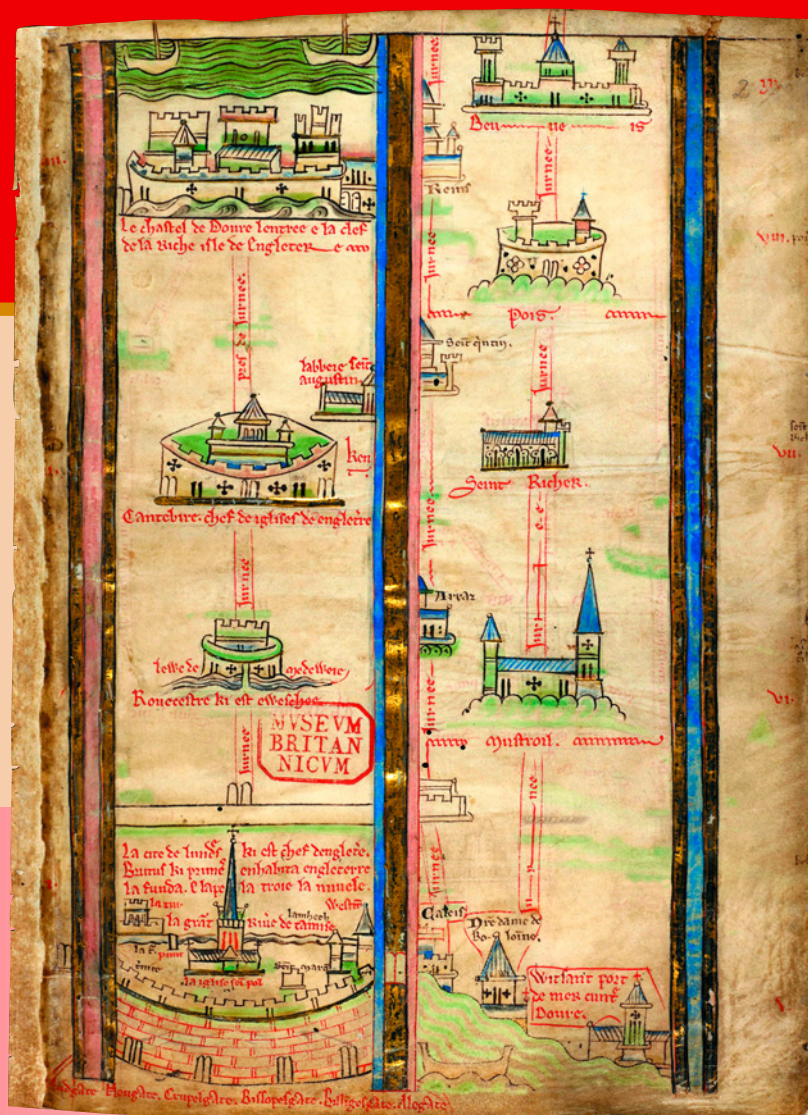 Le chastel de Doure lentree e la clef
de la riche isle de Engleter e
pres de Jurnee.
labbeie seīt
augustin
Ken
Cantebire. chef de iglises de engletere
Jurnee
lewe de medeweie
Rouecestre ki est eweschee.
MVSEVM
BRITAN
NICVM
Jurnee
La cite de lundres ki est chef dengletere.
Brutus ki primes enhabita engleterre
la funda. E lapela troie la nuuele.
la tur
westm
lambeth
la grāt Riue de tamise
punt
La iglise seī pol
Ludgate. Neugate. Crupelgate. Bissopesgate. Billigesgate. Alegate
Jurnee
Beu ue is
Jurnee
Reins
Jurnee
Pois.
Seīt quītin.
Jurnee
Seint Richer.
Jurnee
Jurnee
Arraz
Jurnee
Mustroil.
Jurnee
Caleis
Nre dame de
Boloine.
Witsant port
de mer cuntre
Doure.
2
VIII.
VII.
VI.
V